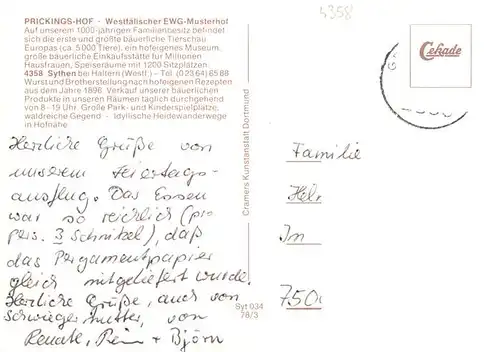 PRICKINGS-HOF - Westfälischer EWG-Musterhof
Auf unserem 1000-jährigen Familienbesitz befindet
sich die erste und größte bäuerliche Tierschau
Europas (ca. 5000 Tiere), ein hofeigenes Museum,
große bäuerliche Einkaufsstätte für Millionen
Hausfrauen, Speiseräume mit 1200 Sitzplätzen.
4358 Sythen bei Haltern (Westf.) - Tel. (0 23 64) 65 88
Wurst und Brotherstellung nach hofeigenen Rezepten
aus dem Jahre 1898. Verkauf unserer bäuerlichen
Produkte in unseren Räumen täglich durchgehend
von 8-19 Uhr. Große Park- und Kinderspielplätze,
waldreiche Gegend - Idyllische Heidewanderwege
in Hofnähe
Herzliche Grüße von
unserem Feiertags-
ausflug. Das Essen
war so reichlich (pro
pers. 3 Schnitzel), daß
das Pergamentpapier
gleich mitgeliefert wurde.
Herzliche Grüße, auch von
Schwiegermutter, von
Renate, + Björn
Cramers Kunstanstalt Dortmund
Syt 034
78/3
4358
Cekade
Familie
Hel
Im
750